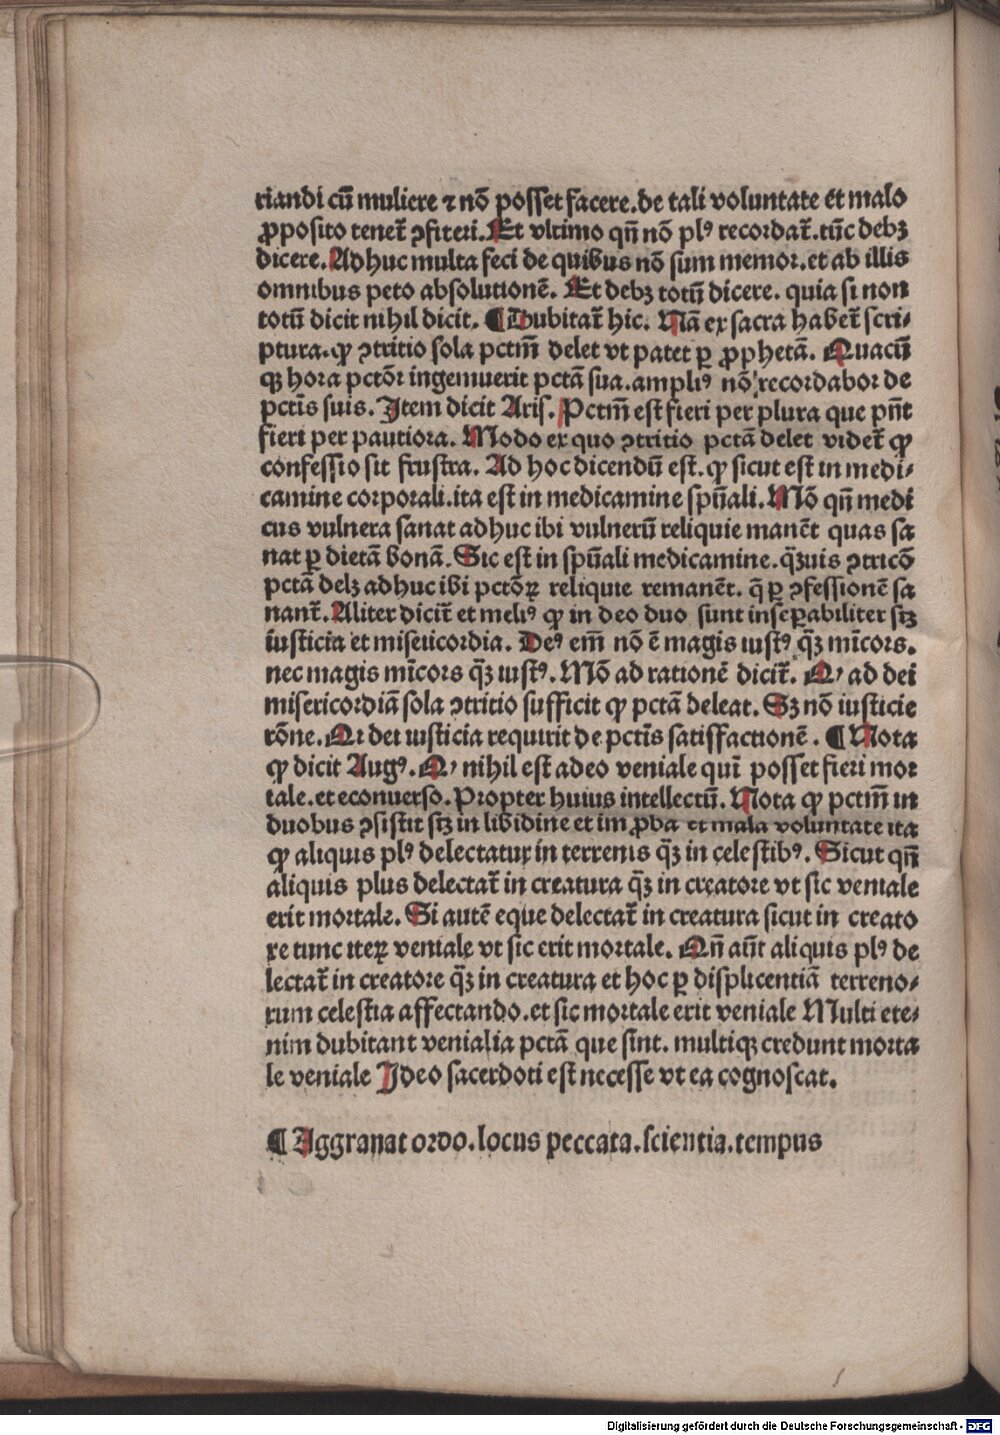 riandi cū muliere ⁊ nō posset facere.de tali voluntate et malo
ꝓposito tenet̄ ꝯfiteri.Et vltimo qn̄ nō plꝰ recordat̄.tūc debꝫ
dicere.Adhuc multa feci de quibus nō sum memor.et ab illis
omnibus peto absolutionē. Et debꝫ totū dicere. quia si non
totū dicit nihil dicit. ¶ Dubitat̄ hic. Nā ex sacra habet̄ scri⸗
ptura.ꝙ ꝯtritio sola pctm̄ delet vt patet ꝑ ꝓphetā. Quacū
qꝫ hora pctōr ingemuerit pctā sua.ampliꝰ nō recordabor de
pctīs suis. Item dicit Aris. Pctm̄ est fieri per plura que pn̄t
fieri per pautiora. Modo ex quo ꝯtritio pctā delet videt̄ ꝙ
confessio sit frustra. Ad hoc dicendū est.ꝙ sicut est in medi⸗
camine corporali.ita est in medicamine spūali.Mō qn̄ medi
cus vulnera sanat adhuc ibi vulnerū reliquie manēt quas sa
nat ꝑ dietā bonā.Sic est in spūali medicamine.qꝫuis ꝯtricō
pctā delꝫ adhuc ibi pctōꝝ reliquie remanēt. q̄ ꝑ ꝯfessionē sa
nant̄.Aliter dicit̄ et meliꝰ ꝙ in deo duo sunt inseꝑabiliter sꝫ
iusticia et misericordia. Deꝰ em̄ nō ē magis iustꝰ qꝫ mīcors.
nec magis mīcors qꝫ iustꝰ.Mō ad rationē dicit̄. Qꝛ ad dei
misericordiā sola ꝯtritio sufficit ꝙ pctā deleat. Sꝫ nō iusticie
rōne.Qꝛ dei iusticia requirit de pctīs satisfactionē. ¶ Nota
ꝙ dicit Augꝰ.Qꝛ nihil est adeo veniale quī posset fieri mor
tale.et econuerso.Propter huius intellectū. Nota ꝙ pctm̄ in
duobus ꝯsistit sꝫ in libidine et imꝓba et mala voluntate ita
ꝙ aliquis plꝰ delectatur in terrenis qꝫ in celestibꝰ. Sicut qn̄
aliquis plus delectat̄ in creatura qꝫ in creatore vt sic veniale
erit mortale. Si autē eque delectat̄ in creatura sicut in creato
re tunc iteꝝ veniale vt sic erit mortale. Qn̄ aūt aliquis plꝰ de
lectat̄ in creatore qꝫ in creatura et hoc ꝑ displicentiā terreno⸗
rum celestia affectando.et sic mortale erit veniale Multi ete⸗
nim dubitant venialia pctā que sint. multiqꝫ credunt morta
le veniale Ideo sacerdoti est necesse vt ea cognoscat.
¶ Aggrauat ordo.locus peccata.scientia.tempus
Digitalisierung gefördert durch die Deutsche Forschungsgemeinschaft - DFG